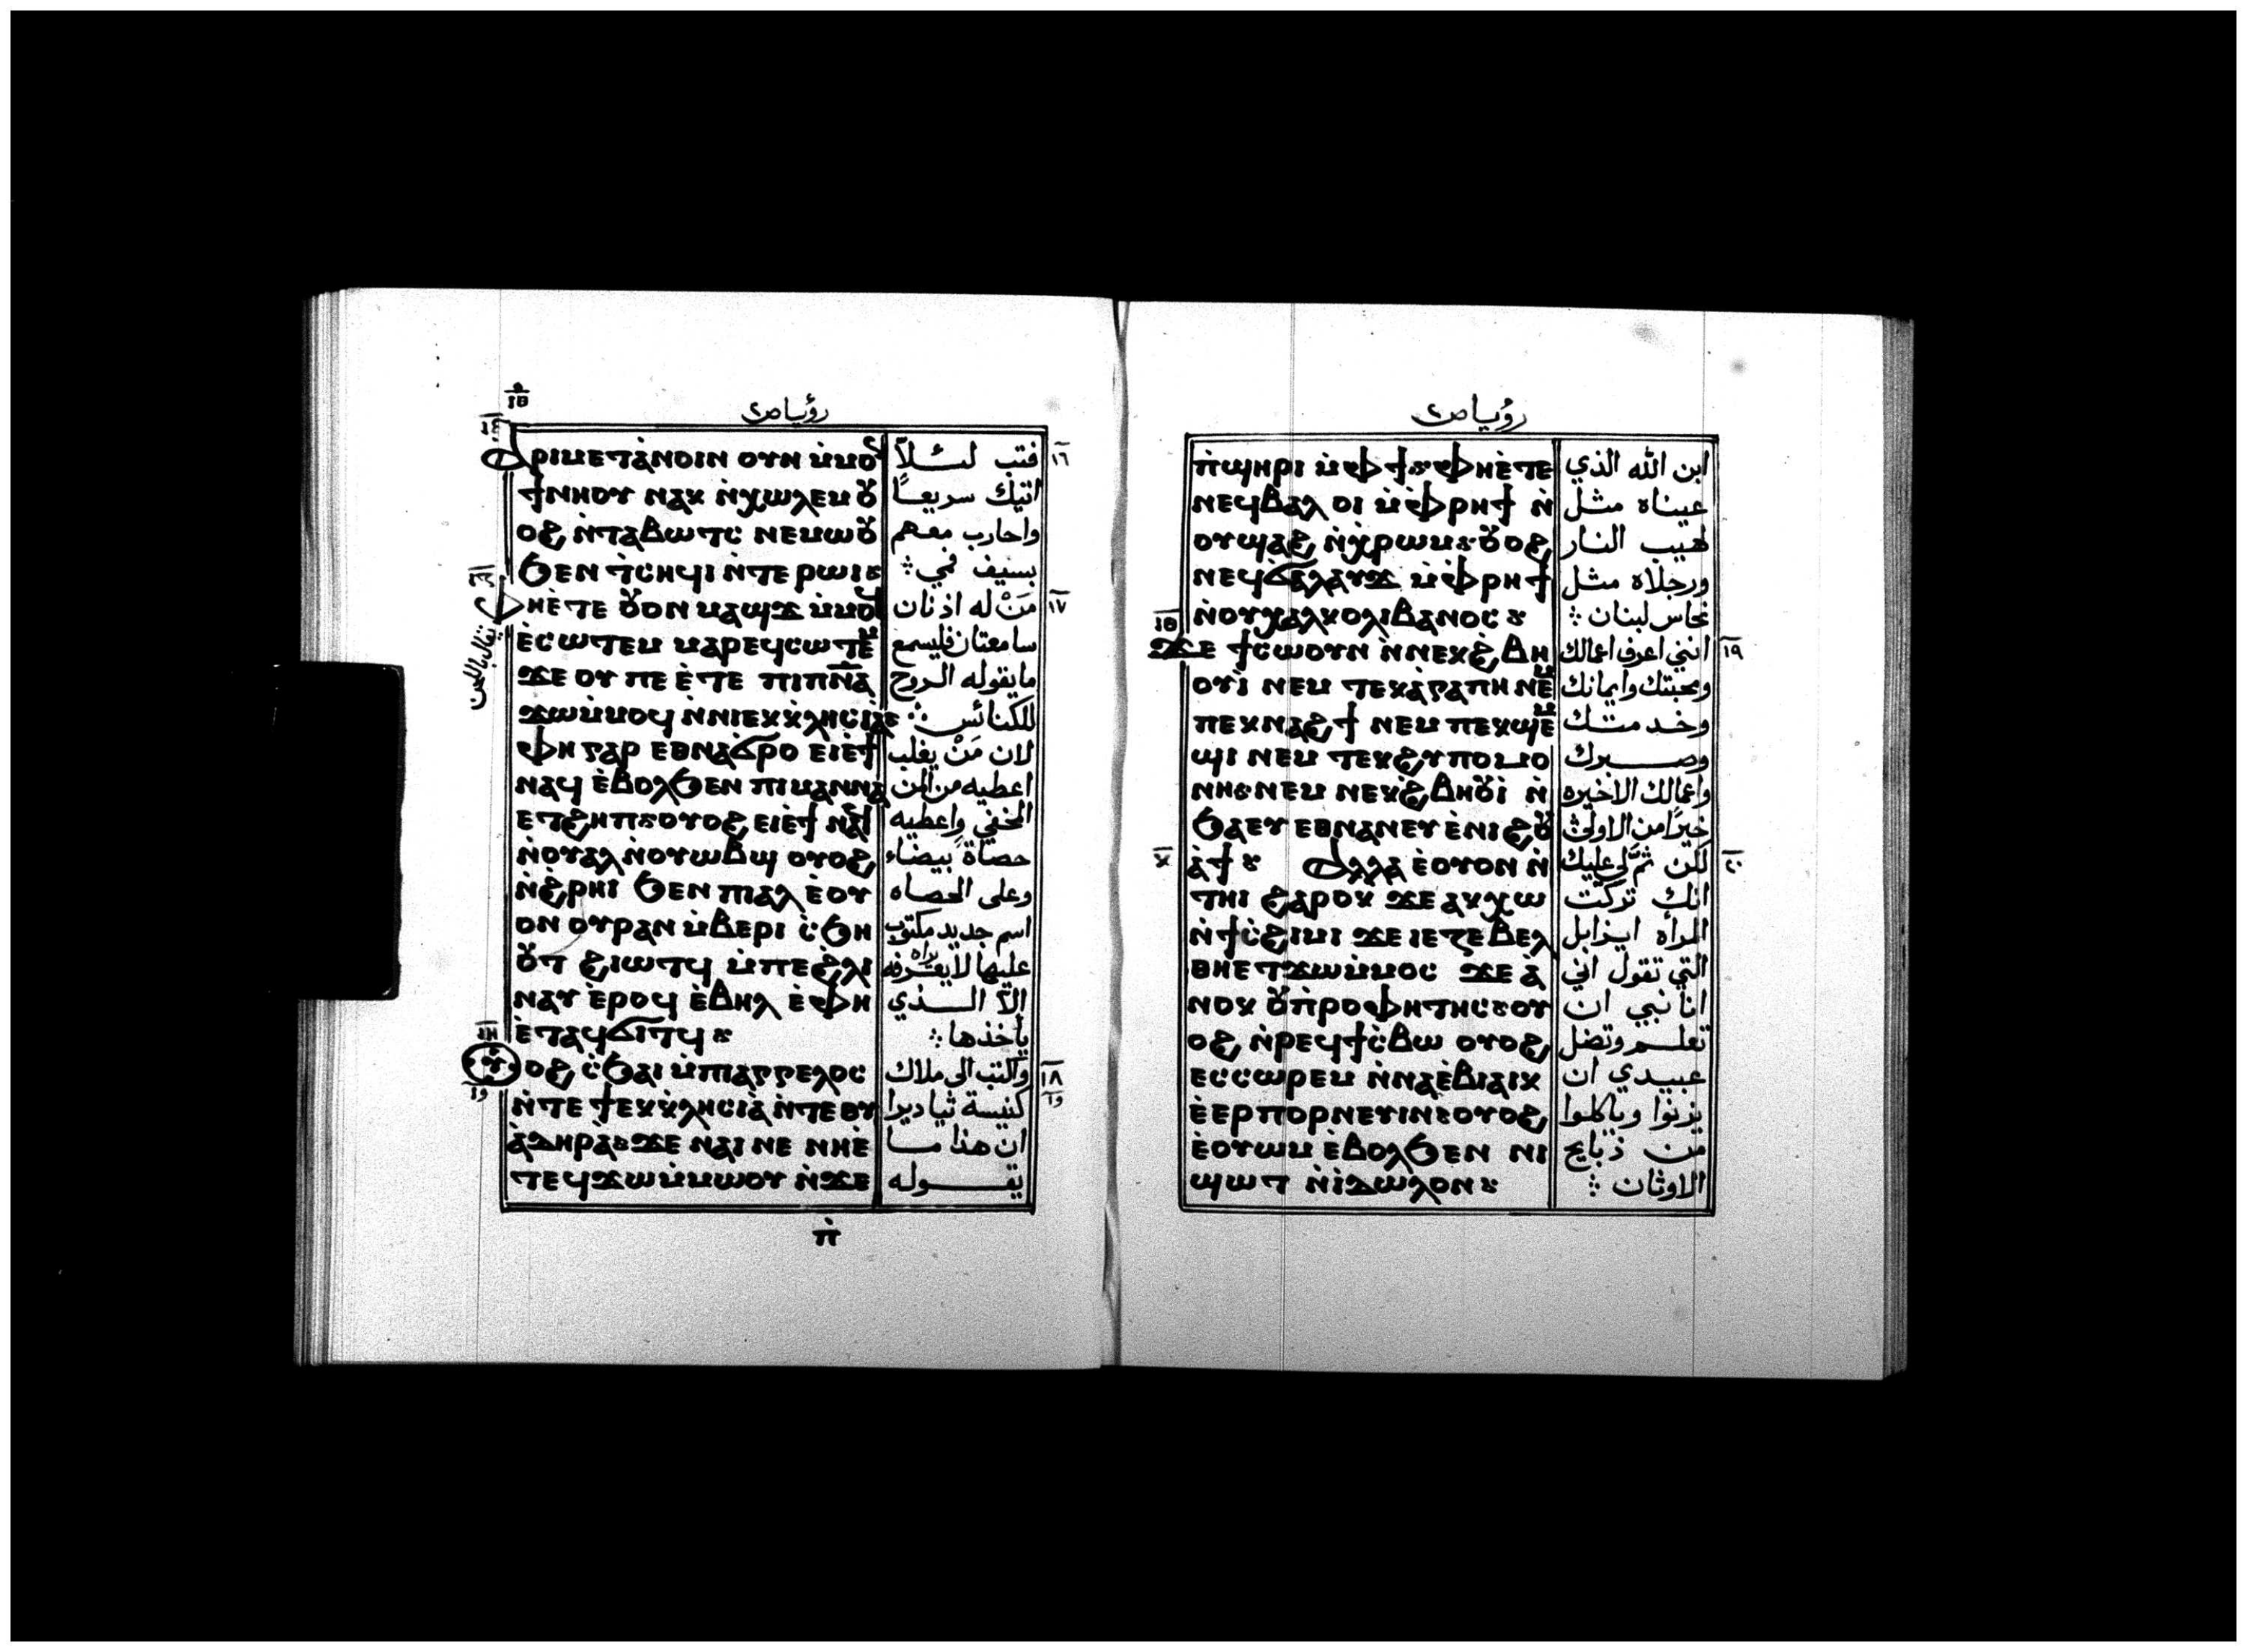 رؤيا ص٢
ⲁⲣⲓⲙⲉⲧⲁ̀ⲛⲟⲓⲛ ⲟⲩⲛ ⲙ̀ⲙⲟ
ϯⲛⲏⲟⲩ ⲛⲁⲕ ⲛ̀ⲭⲱⲗⲉⲙ ⲟⲩ
ⲟϩ ⲛ̀ⲧⲁⲃⲱⲧⲥ ⲛⲉⲙⲱⲟⲩ
ϧⲉⲛ ⲧ̀ⲥⲏϥⲓ ⲛ̀ⲧⲉ ⲣⲱⲓ
ⲫⲏⲉ̀ⲧⲉ ⲟⲩⲟⲛ ⲙⲁϣϫ ⲙ̀ⲙⲟϥ
ⲉ̀ⲥⲱⲧⲉⲙ ⲙⲁⲣⲉϥⲥⲱⲧⲉⲙ
ϫⲉ ⲟⲩ ⲡⲉ ⲉ̀ⲧⲉ ⲡⲓⲡⲛ̅ⲁ̅
ϫⲱⲙ̀ⲙⲟϥ ⲛ̀ⲛⲓⲉⲕⲕ̀ⲗⲏⲥⲓⲁ̀
ⲫⲏ ⲅⲁⲣ ⲉⲑⲛⲁϭ̀ⲣⲟ ⲉⲓⲉ̀ϯ
ⲛⲁϥ ⲉ̀ⲃⲟⲗϧⲉⲛ ⲡⲓⲙⲁⲛⲛⲁ
ⲉⲧϩⲏⲡ ⲟⲩⲟϩ ⲉⲓⲉ̀ϯ ⲛⲁϥ
ⲛ̀ⲟⲩⲁⲗ ⲛ̀ⲟⲩⲱⲃϣ ⲟⲩⲟϩ
ⲛ̀ϩ̀ⲣⲏⲓ ϧⲉⲛ ⲡⲓⲁⲗ ⲉ̀ⲟⲩ
ⲟⲛ ⲟⲩⲣⲁⲛ ⲙ̀ⲃⲉⲣⲓ ⲥ̀ϧⲏ
ⲟⲩⲧ ϩⲓⲱⲧϥ ⲙ̀ⲡⲉϩ̀ⲗⲓ
ⲛⲁⲩ ⲉ̀ⲣⲟϥ ⲉ̀ⲃⲏⲗ ⲉ̀ⲫⲏ
ⲉ̀ⲧⲁϥϭⲓⲧϥ
ⲟⲩⲟϩ ⲥ̀ϧⲁⲓ ⲙ̀ⲡⲓⲁⲅⲅⲉⲗⲟⲥ
ⲛ̀ⲧⲉ ϯⲉⲕⲕ̀ⲗⲏⲥⲓⲁ̀ ⲛ̀ⲧⲉ ⲑⲩ
ⲁ̀ⲇⲏⲣⲁ̀ ϫⲉ ⲛⲁⲓ ⲛⲉ ⲛⲏⲉ̀
ⲧⲉϥϫⲱⲙ̀ⲙⲱⲟⲩ ⲛ̀ϫⲉ
ⲡ̀
١٦ فتب لئلاّ
اتيك سريعاً
واحارب معهم
بسيف فمي
١٧ مَنْ له اذنان
سامعتان فليسمع
مايقوله الروح
للكنائس
لان مَنْ يغلب
اعطيه من المن
المخفي واعطيه
حصاةً بيضاء
وعلى الحصاه
اسم جديد مكتوب
عليها لا يعرفه يراه
الاّ الذي
يأخذها
١٨ واكتب الى ملاك
كنيسة ثياديرا
ان هذا ما
يقوله
رؤيا ص٢
ⲡ̀ϣⲏⲣⲓ ⲙ̀ⲫϯ ⲫⲏⲉ̀ⲧⲉ
ⲛⲉϥⲃⲁⲗ ⲟⲓ ⲙ̀ⲫ̀ⲣⲏϯ ⲛ̀
ⲟⲩϣⲁϩ ⲛ̀ⲭ̀ⲣⲱⲙ ⲟⲩⲟϩ
ⲛⲉϥϭⲁⲗⲁⲩϫ ⲙ̀ⲫ̀ⲣⲏϯ
ⲛ̀ⲟⲩⲭⲁⲗⲕⲟⲗⲓⲃⲁⲛⲟⲥ
ϫⲉ ϯⲥⲱⲟⲩⲛ ⲛ̀ⲛⲉⲕϩ̀ⲃⲏ
ⲟⲩⲓ̀ ⲛⲉⲙ ⲧⲉⲕⲁ̀ⲅⲁⲡⲏ ⲛⲉⲙ
ⲡⲉⲕⲛⲁϩϯ ⲛⲉⲙ ⲡⲉⲕϣⲉⲙ
ϣⲓ ⲛⲉⲙ ⲧⲉⲕϩⲩⲡⲟⲙⲟ
ⲛⲏ ⲛⲉⲙ ⲛⲉⲕϩ̀ⲃⲏⲟⲩⲓ̀ ⲛ̀
ϧⲁⲉⲩ ⲉⲑⲛⲁⲛⲉⲩ ⲉ̀ⲛⲓϩⲟⲩ
ⲁ̀ϯ ⲁⲗⲗⲁ ⲉ̀ⲟⲩⲟⲛ ⲛ̀
ⲧⲏⲓ ϩⲁⲣⲟⲕ ϫⲉ ⲁⲕⲭⲱ
ⲛ̀ϯⲥ̀ϩⲓⲙⲓ ϫⲉ ⲓⲉⲍⲉⲃⲉⲗ
ⲑⲏⲉⲧϫⲱⲙ̀ⲙⲟⲥ ϫⲉ ⲁ̀
ⲛⲟⲕ ⲟⲩⲡ̀ⲣⲟⲫⲏⲧⲏⲥ ⲟⲩ
ⲟϩ ⲛ̀ⲣⲉϥϯⲥ̀ⲃⲱ ⲟⲩⲟϩ
ⲉⲥⲥⲱⲣⲉⲙ ⲛ̀ⲛⲁⲉ̀ⲃⲓⲁⲓⲕ
ⲉ̀ⲉⲣⲡⲟⲣⲛⲉⲩⲓⲛ ⲟⲩⲟϩ
ⲉ̀ⲟⲩⲱⲙ ⲉ̀ⲃⲟⲗϧⲉⲛ ⲛⲓ
ϣⲱⲧ ⲛ̀ⲓ̀ⲇⲱⲗⲟⲛ
ابن الله الذي
عيناه مثل
لهيب النار
ورجلاه مثل
نحاس لبنان
١٩ انني اعرف اعمالك
ومحبتك وايمانك
وخدمتك
وصبرك
واعمالك الاخيره
خيراً من الاولى
٢٠ لكن ثمَّ لي عليك
انك تركت
المرأه ايزابل
التي تقول اني
انا نبي ان
تعلم وتضل
عبيدي ان
يزنوا وياكلوا
من ذبايح
الاوثان